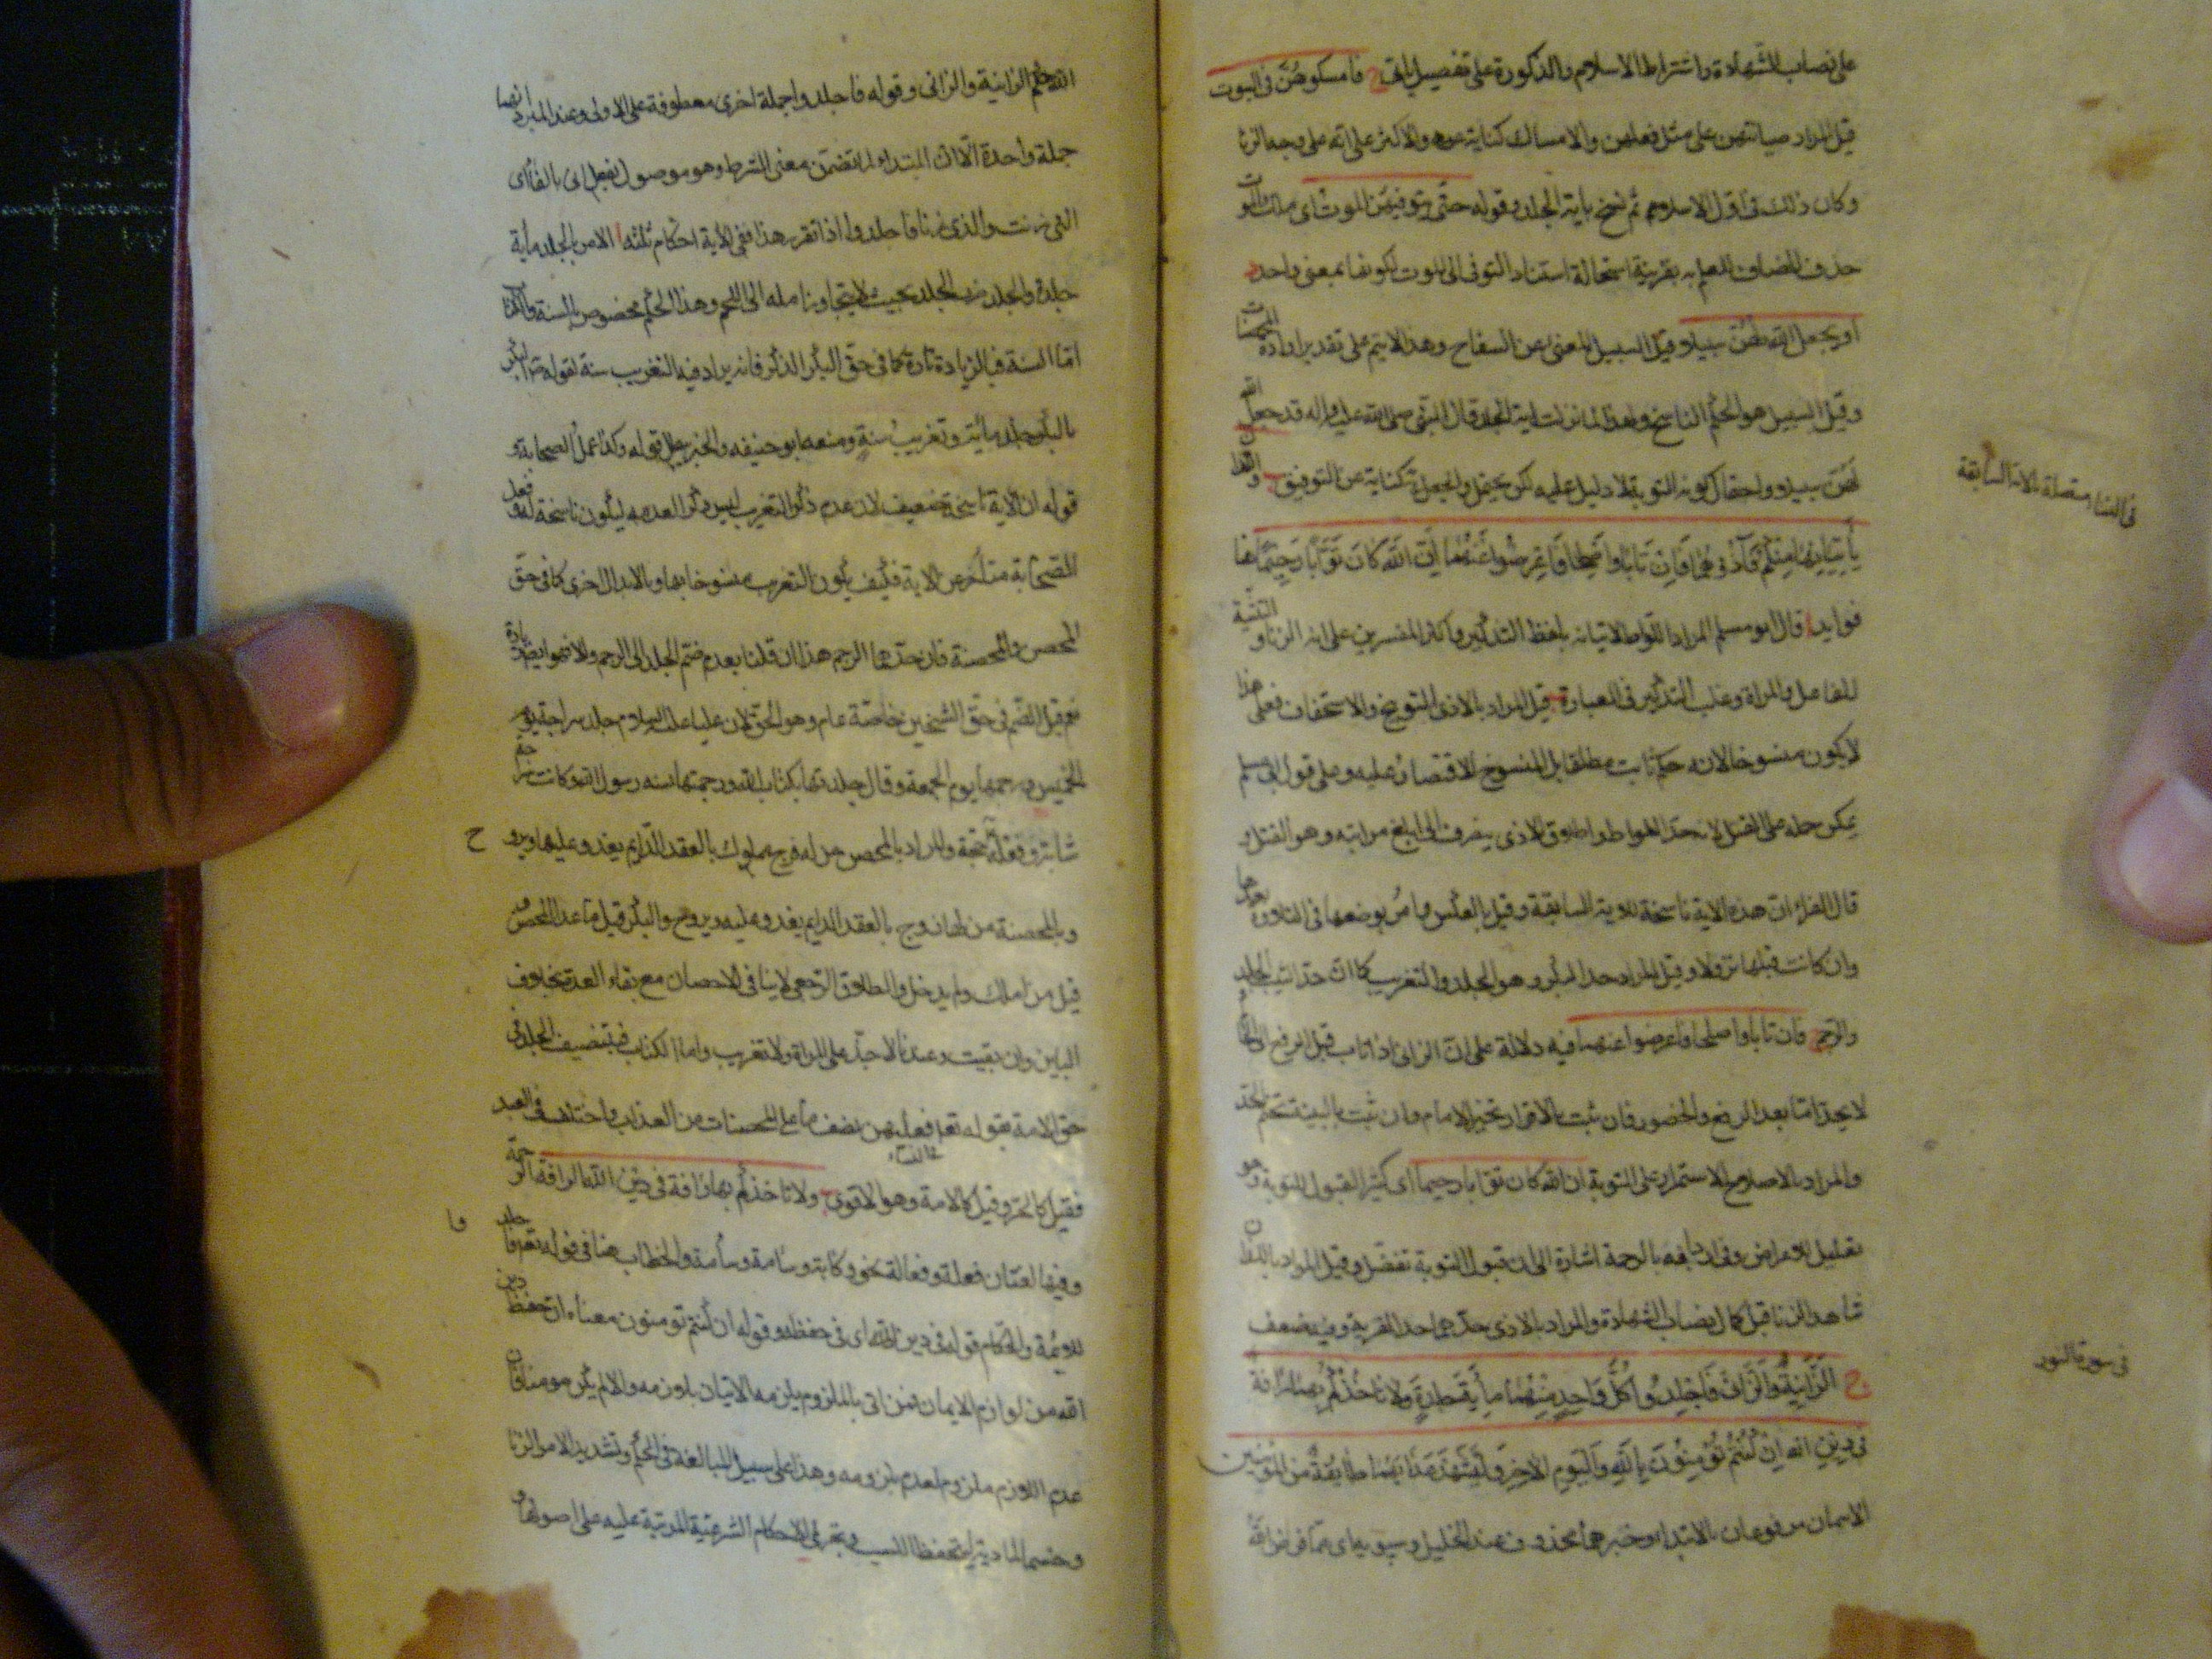 على نصاب الشهادة واشتراط الاسلام والذكورة على تفصيل يأتي ج فامسكوهن في البيوت
قيل المراد صيانتهن على مثل فعلهن والامساك كناية عنه والاكثر على انه على وجه الزنا
وكان ذلك في اول الاسلام ثم نسخ بآية الجلد وقوله حتى يتوفيهن الموت اى ملك الموت
حذف المضاف للعلم به بقرينة استحالة استناد التوفى الى الموت لكونهما بمعنى واحد د
او يجعل الله لهن سبيلا قيل السبيل المغنى عن السفاح وهذا لا يتم على تقدير ارادة المحصنات
وقيل السبيل هو الحكم الناسخ ولهذا لما نزلت اية الجلد قال النبي صلى الله عليه واله قد جعل الله
لهن سبيلا واحتمال كونه التوبة لا دليل عليه لكن يحتمل والجعل كناية عن التوفيق ب واللذان
يأتيانها منكم فآذوهما فان تابا واصلحا فاعرضوا عنهما ان الله كان توابا رحيما هنا
فوايد ا قال ابو مسلم المراد اللواط لاتيانه بلفظ التذكير واكثر المفسرين على انه الزنا والتثنية
للفاعل والمراة وغلب التذكير في العبارة ب قيل المراد بالاذى التوبيخ والاستخفاف فعلى هذا
لا يكون منسوخا لانه حكم ثابت مطلقا بل المنسوخ الاقتصار عليه وعلى قول ابى مسلم
يمكن حمله على القتل لانه حد اللواط واطلاق الاذى ينصرف الى ابلغ مراتبه وهو القتل و
قال الفراء ان هذه الاية ناسخة للاية السابقة وقيل بالعكس وامر بوضعها في التلاوة بعدها
وان كانت قبلها نزولا وقيل المراد حد البكر وهو الجلد والتغريب كما ان حد الثيب الجلد
والرجم ج فان تابا واصلحا فاعرضوا عنهما فيه دلالة على ان الزانى اذا تاب قبل الرفع الى الحاكم
لا يحد اما بعد الرفع والحضور فان ثبت بالاقرار تخير الامام وان ثبت بالبينة تحتم الحد
والمراد بالاصلاح الاستمرار على التوبة ان الله كان توابا رحيما اى كثير القبول للتوبة وهو
تعليل للاعراض وفى اردافه بالرحمة اشارة الى ان قبول التوبة تفضل وقيل المراد باللذان
شاهدا الزنا قبل كمال نصاب الشهادة والمراد بالاذى حدهما حد الفرية وفيه ضعف
ج الزانية والزانى فاجلدوا كل واحد منهما مأية جلدة ولا تأخذكم بهما رافة
في دين الله ان كنتم تؤمنون بالله واليوم الاخر وليشهد عذابهما طائفة من المؤمنين
الاسمان مرفوعان بالابتداء وخبرهما محذوف عند الخليل وسيبويه اى مما فرض الله
في النساء متصلة بالاية السابقة
في سورة النور
الله حكم الزانية والزانى وقوله فاجلدوا جملة اخرى معطوفة على الاولى وعند المبرد انهما
جملة واحدة الا ان المبتداء لما تضمن معنى الشرط وهو موصول بفعل اتى بالفاء اى
التى زنت والذى زنا فاجلدوا اذا تقرر هذا ففي الاية احكام ثلثة ا الامر بالجلد مأية
جلدة والجلد ضرب الجلد بحيث لا يتجاوز المه الى اللحم وهذا الحكم مخصوص بالسنة والكتاب
اما السنة فبالزيادة تارة كما في حق البكر الذكر فانه يراد فيه التغريب سنة لقوله ص البكر
بالبكر جلد مائة وتغريب سنة ومنعه ابو حنيفه والخبر يبطل قوله وكذا عمل الصحابة و
قوله ان الاية ناسخة ضعيف لان عدم ذكر التغريب ليس ذكر العدمه ليكون ناسخة له وفعل
الصحابة متأخر عن الاية فكيف يكون التغريب منسوخا بها وبالابدال اخرى كما في حق
المحصن والمحصنة فان حدهما الرجم هذا ان قلنا بعدم ضم الجلد الى الرجم والا فهو ايضا زيادة
نعم قيل الضم في حق الشيخين خاصة عام وهو الحق لان عليا عليه السلام جلد سراجة يوم
الخميس ورجمها يوم الجمعة وقال جلدتها بكتاب الله ورجمتها بسنة رسول الله وكانت سراجة
شابة وفعله حجة والمراد بالمحصن من له فرج مملوك بالعقد الدايم يغدو عليها ويروح
وبالمحصنة من لها زوج بالعقد الدايم يغدو عليه ويروح والبكر قيل ما عدا المحصن و
قيل من املك ولم يدخل والطلاق الرجعى لا ينافى الاحصان مع بقاء العدة بخلاف
الباين وان بقيت وعندنا لا جز على المراة ولا تغريب واما الكتاب فبتنصيف الجلد في
حق الامة بقوله تعالى فعليهن نصف ما على المحصنات من العذاب واختلف في العبد
في النساء
فقيل كالحر وقيل كالامة وهو الاقوى ب ولا تأخذكم بهما رافة في دين الله الرافة الرحمة
وفيها لغتان فعلة وفعالة نحو وكابة وسأمة وسآمة والخطاب هنا في قوله تعالى فاجلدوا
للائمة والحكام قوله في دين الله اى في حفظه وقوله ان كنتم تومنون معناه ان حفظ دين
الله من لوازم الايمان فمن اتى بالملزوم يلزمه الاتيان بلازمه والا لم يكن مومنا فان
عدم اللازم ملزوم لعدم ملزومه وهذا على سبيل المبالغة في الحكم وتشديد الامر الزنا
وحسما لمادته لحفظ النسب ويجرى الاحكام الشرعية المرتبة عليه على اصولها و